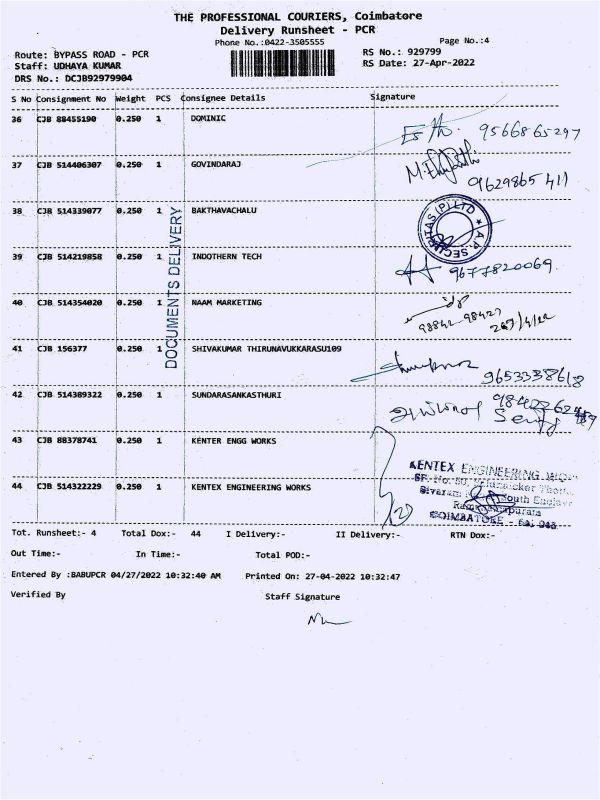 THE PROFESSIONAL COURIERS, Coimbatore
Delivery Runsheet - PCR
Phone No.:0422-3505555
Page No.:4
Route: BYPASS ROAD - PCR
RS No.: 929799
Staff: UDHAYA KUMAR
RS Date: 27-Apr-2022
DRS No.: DCJB92979904
S No Consignment No Weight PCS Consignee Details Signature
36 CJB 88455190 0.250 1 DOMINIC 9566865297
37 CJB 514406307 0.250 1 GOVINDARAJ 9629865411
38 CJB 514339077 0.250 1 BAKTHAVACHALU
39 CJB 514219858 0.250 1 INDOTHERN TECH 9677820069
40 CJB 514354020 0.250 1 NAAM MARKETING 98842-98427
41 CJB 156377 0.250 1 SHIVAKUMAR THIRUNAVUKKARASU109 9653338618
42 CJB 514389322 0.250 1 SUNDARASANKASTHURI
43 CJB 88378741 0.250 1 KENTER ENGG WORKS
44 CJB 514322229 0.250 1 KENTEX ENGINEERING WORKS
DOCUMENTS DELIVERY
KENTEX ENGINEERING
South
COIMBATORE
Tot. Runsheet:- 4 Total Dox:- 44 I Delivery:- II Delivery:- RTN Dox:-
Out Time:- In Time:- Total POD:-
Entered By :BABUPCR 04/27/2022 10:32:40 AM Printed On: 27-04-2022 10:32:47
Verified By Staff Signature